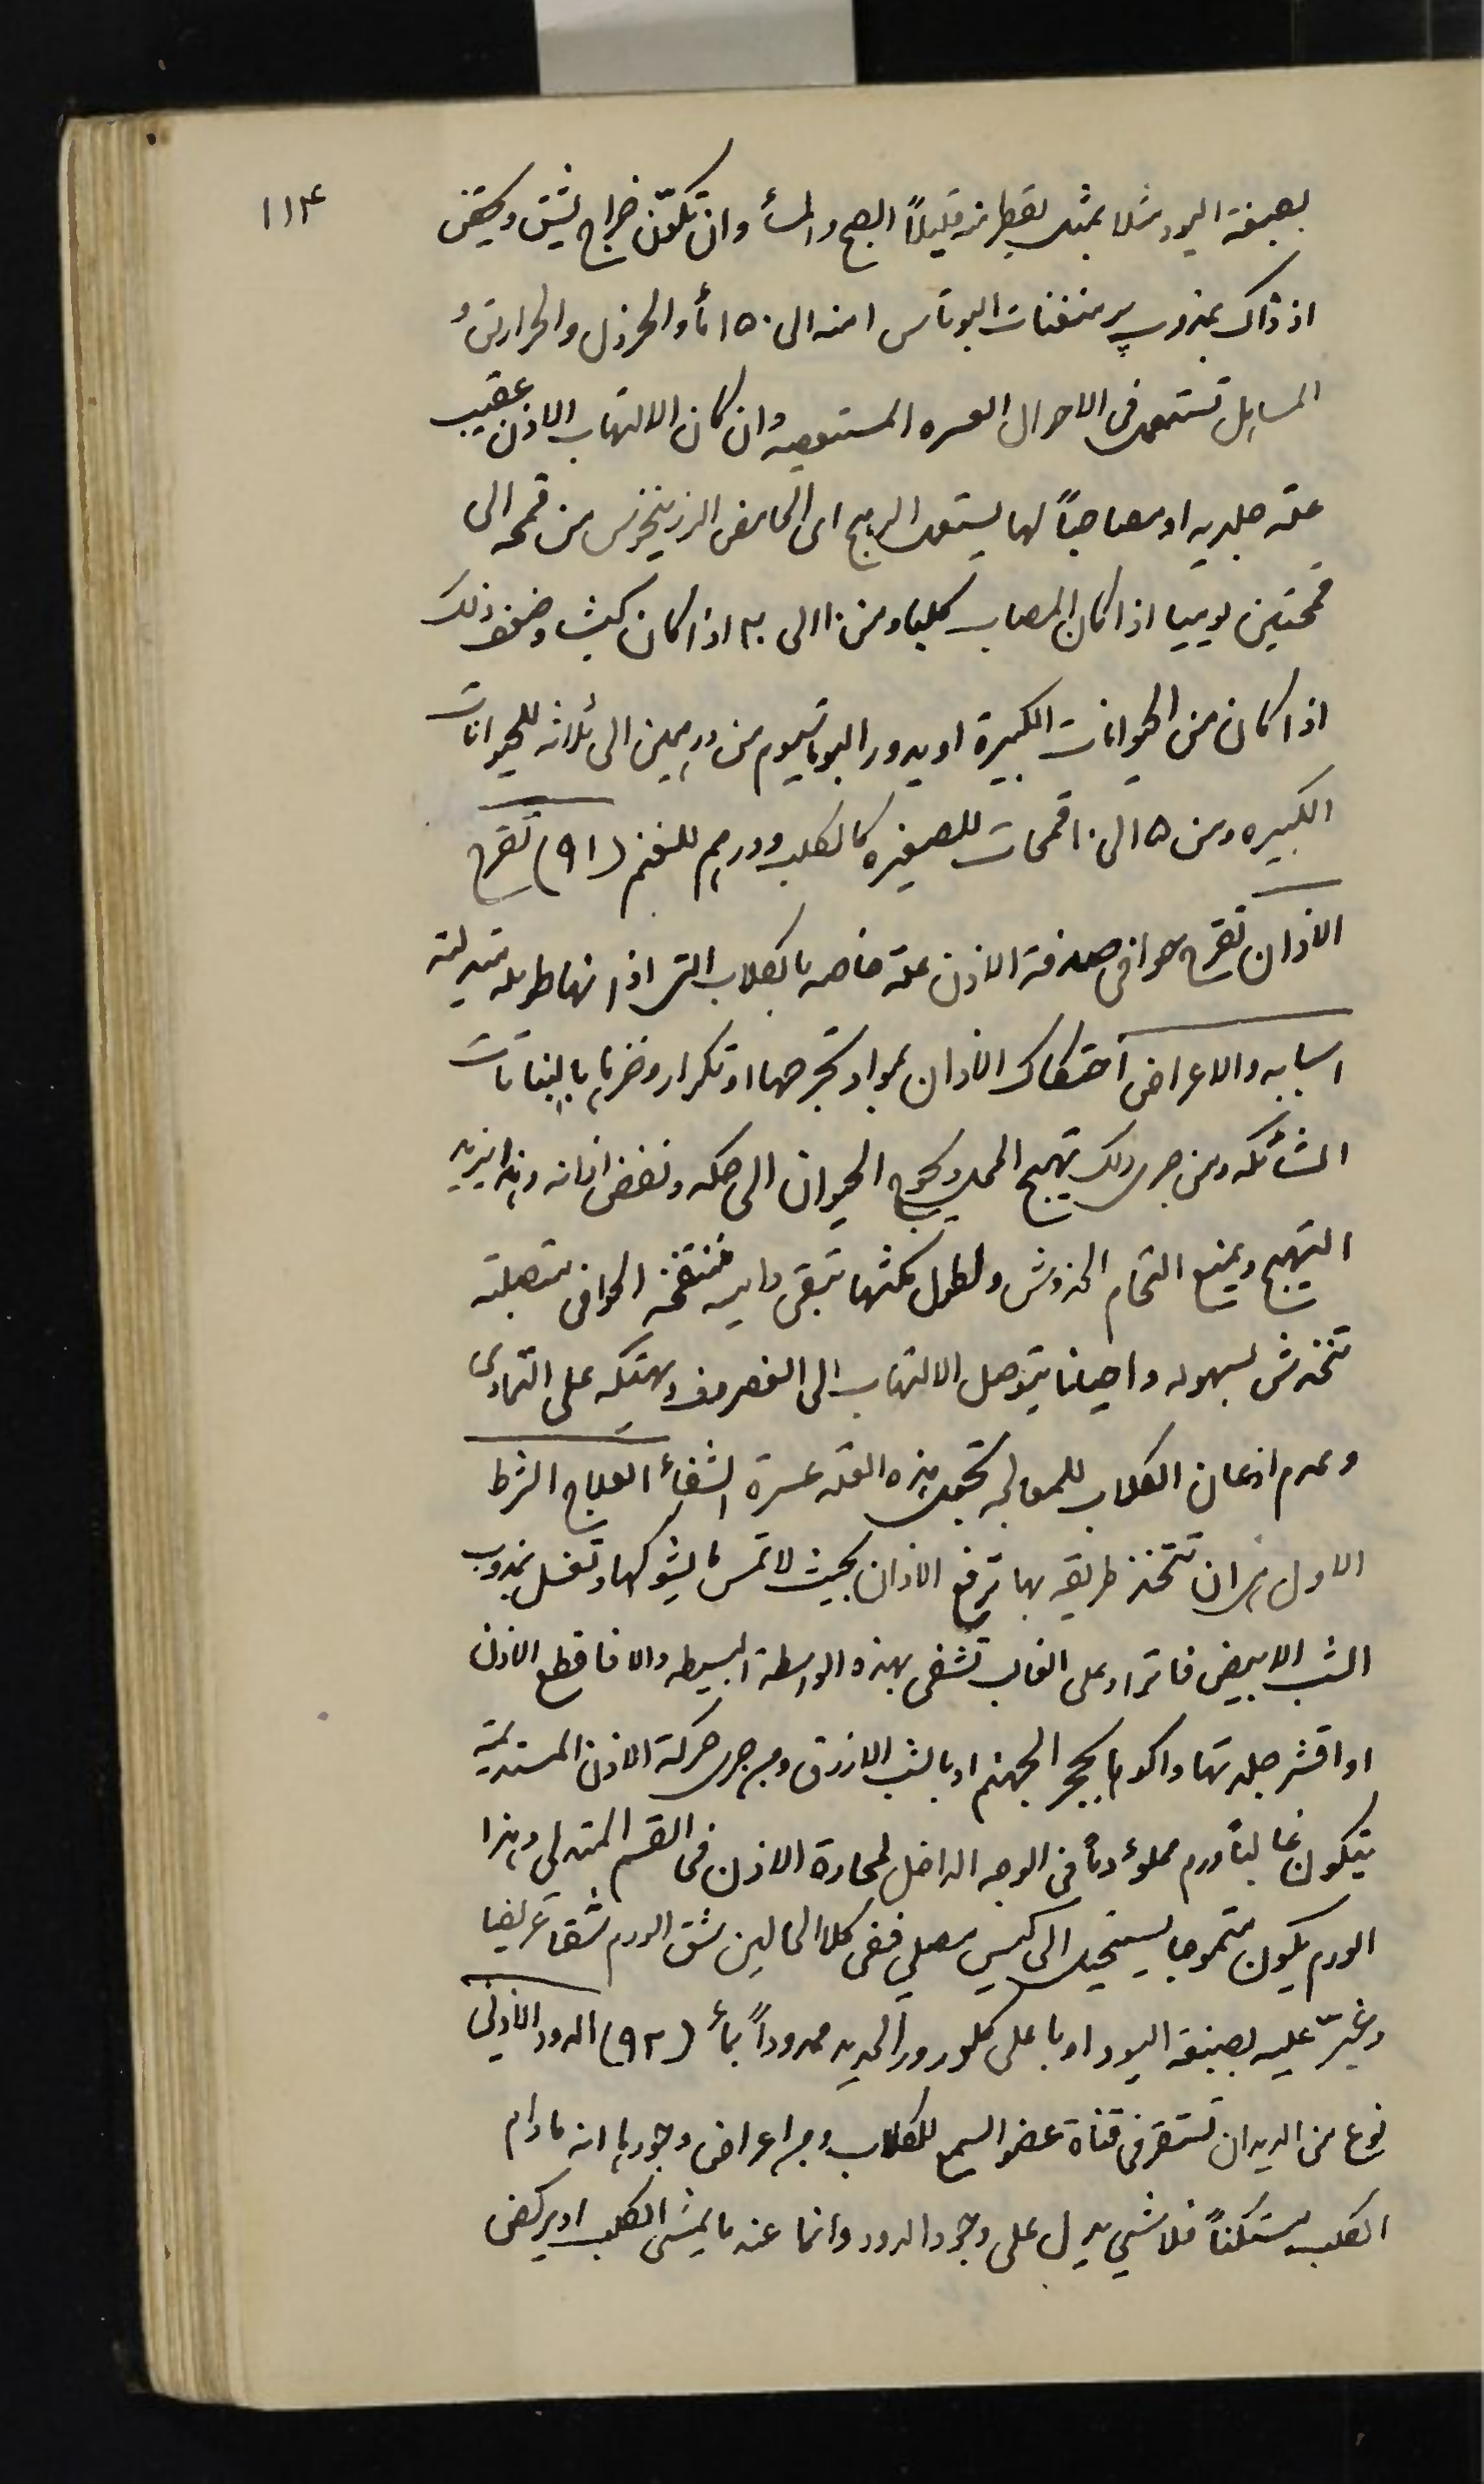 ١١٤
بصبغة اليود مثلا بمثل يقطر منه قليلاً الصبح والمسأ وان تكوّن خراج يشق ويحقن
اذ ذاك بمذوب پرمنغنات البوتاس ا منه الى ١٥٠ مأ والخزل والحراريق
المسايل تستعمل فى الاحوال العسره المستعصيه وان كان الالتهاب الاذن عقيب
علة جلديه او مصاحباً لها يستعمل الربج اى الحامض الزرنيخوس من قمحه الى
قمحتين يوميا اذا كان المصاب كلبا ومن ١٠ الى ٢٠ اذا كان كبشا وضعف ذلك
اذا كان من الحيوانات الكبيرة او يدور البوتاسيوم من درهمين الى ثلاثه للحيوانات
الكبيره ومن ٥ الى ١٠ قمحات للصغيره كالكلب ودرهم للغنم (٩١) تقرح
الاذان تقرح حوافى صدفة الاذن علة خاصه بالكلاب التى اذانها طويله متدلية
اسبابه والاعراض احتكاك الاذان بمواد تجرحها او تكرار وخزها بالنباتات
الشائكه ومن جرى ذلك تهيج المحل ويحوج الحيوان الى حكه ونفض اذانه وهذا يزيد
التهيج ويمنع التحام الخدوش ولطول مكثها تبقى داميه منتفخة الحوافى متصلبة
تتخدش بسهوله واحيانا يتوصل الالتهاب الى الغضروف ويهتكه على التمادى
وعدم اذعان الكلاب للمعالجه تجعل هذه العلة عسرة الشفأ العلاج الشرط
الاول هو ان تتخذ طريقه بها ترفع الاذان بحيث لا تمس ما يشوكها وتغسل بمذوب
الشب الابيض فاترا وعلى الغالب تشفى بهذه الواسطة البسيطه والا فاقطع الاذن
او اقشر جلدتها واكوها بحجر الجهنم او بالشب الازرق ومن جرى حركة الاذن المستديمة
يتكون غالباً ورم مملوء دماً فى الوجه الداخل لمحارة الاذن فى القسم المتدلى وهذا
الورم يكون متموجا يستحيل الى كيس مصلي ففى كلا الحالين شق الورم شقا عريضا
وغيّر عليه بصبغة اليود او باعلى كلورور الحديد ممدوداً بمأ (٩٢) الدود الاذني
نوع من الديدان تستقر فى قناة عضو السمع للكلاب ومن اعراض وجودها انه مادام
الكلب مستكناً فلا شي يدل على وجود الدود وانما عند ما يمشى الكلب او يركض